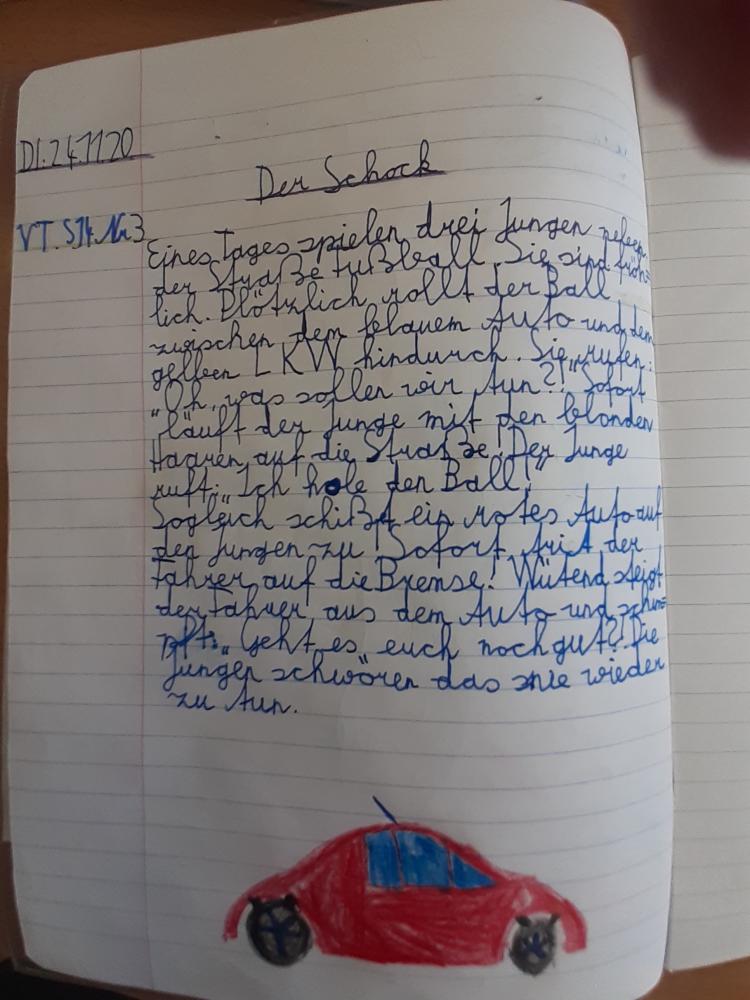 DI.24.11.20
Der Schock
VT.S14.Nr.3
Eines Tages spielen drei Jungen neben
der Straße Fußball. Sie sind fröh=
lich. Plötzlich rollt der Ball
zwischen dem blauem Auto und dem
gelben LKW hindurch. Sie rufen:
"Oh, was sollen wir tun?!" Sofort
läuft der Junge mit den blonden
Haaren auf die Straße. Der Junge
ruft: „Ich hole den Ball!"
Sogleich schißt ein rotes Auto auf
den Jungen zu! Sofort trit der
Fahrer auf die Bremse! Wütend steigt
der Fahrer aus dem Auto und schim=
pft: „Geht es euch noch gut?" Die
Jungen schwören das nie wieder
zu tun.